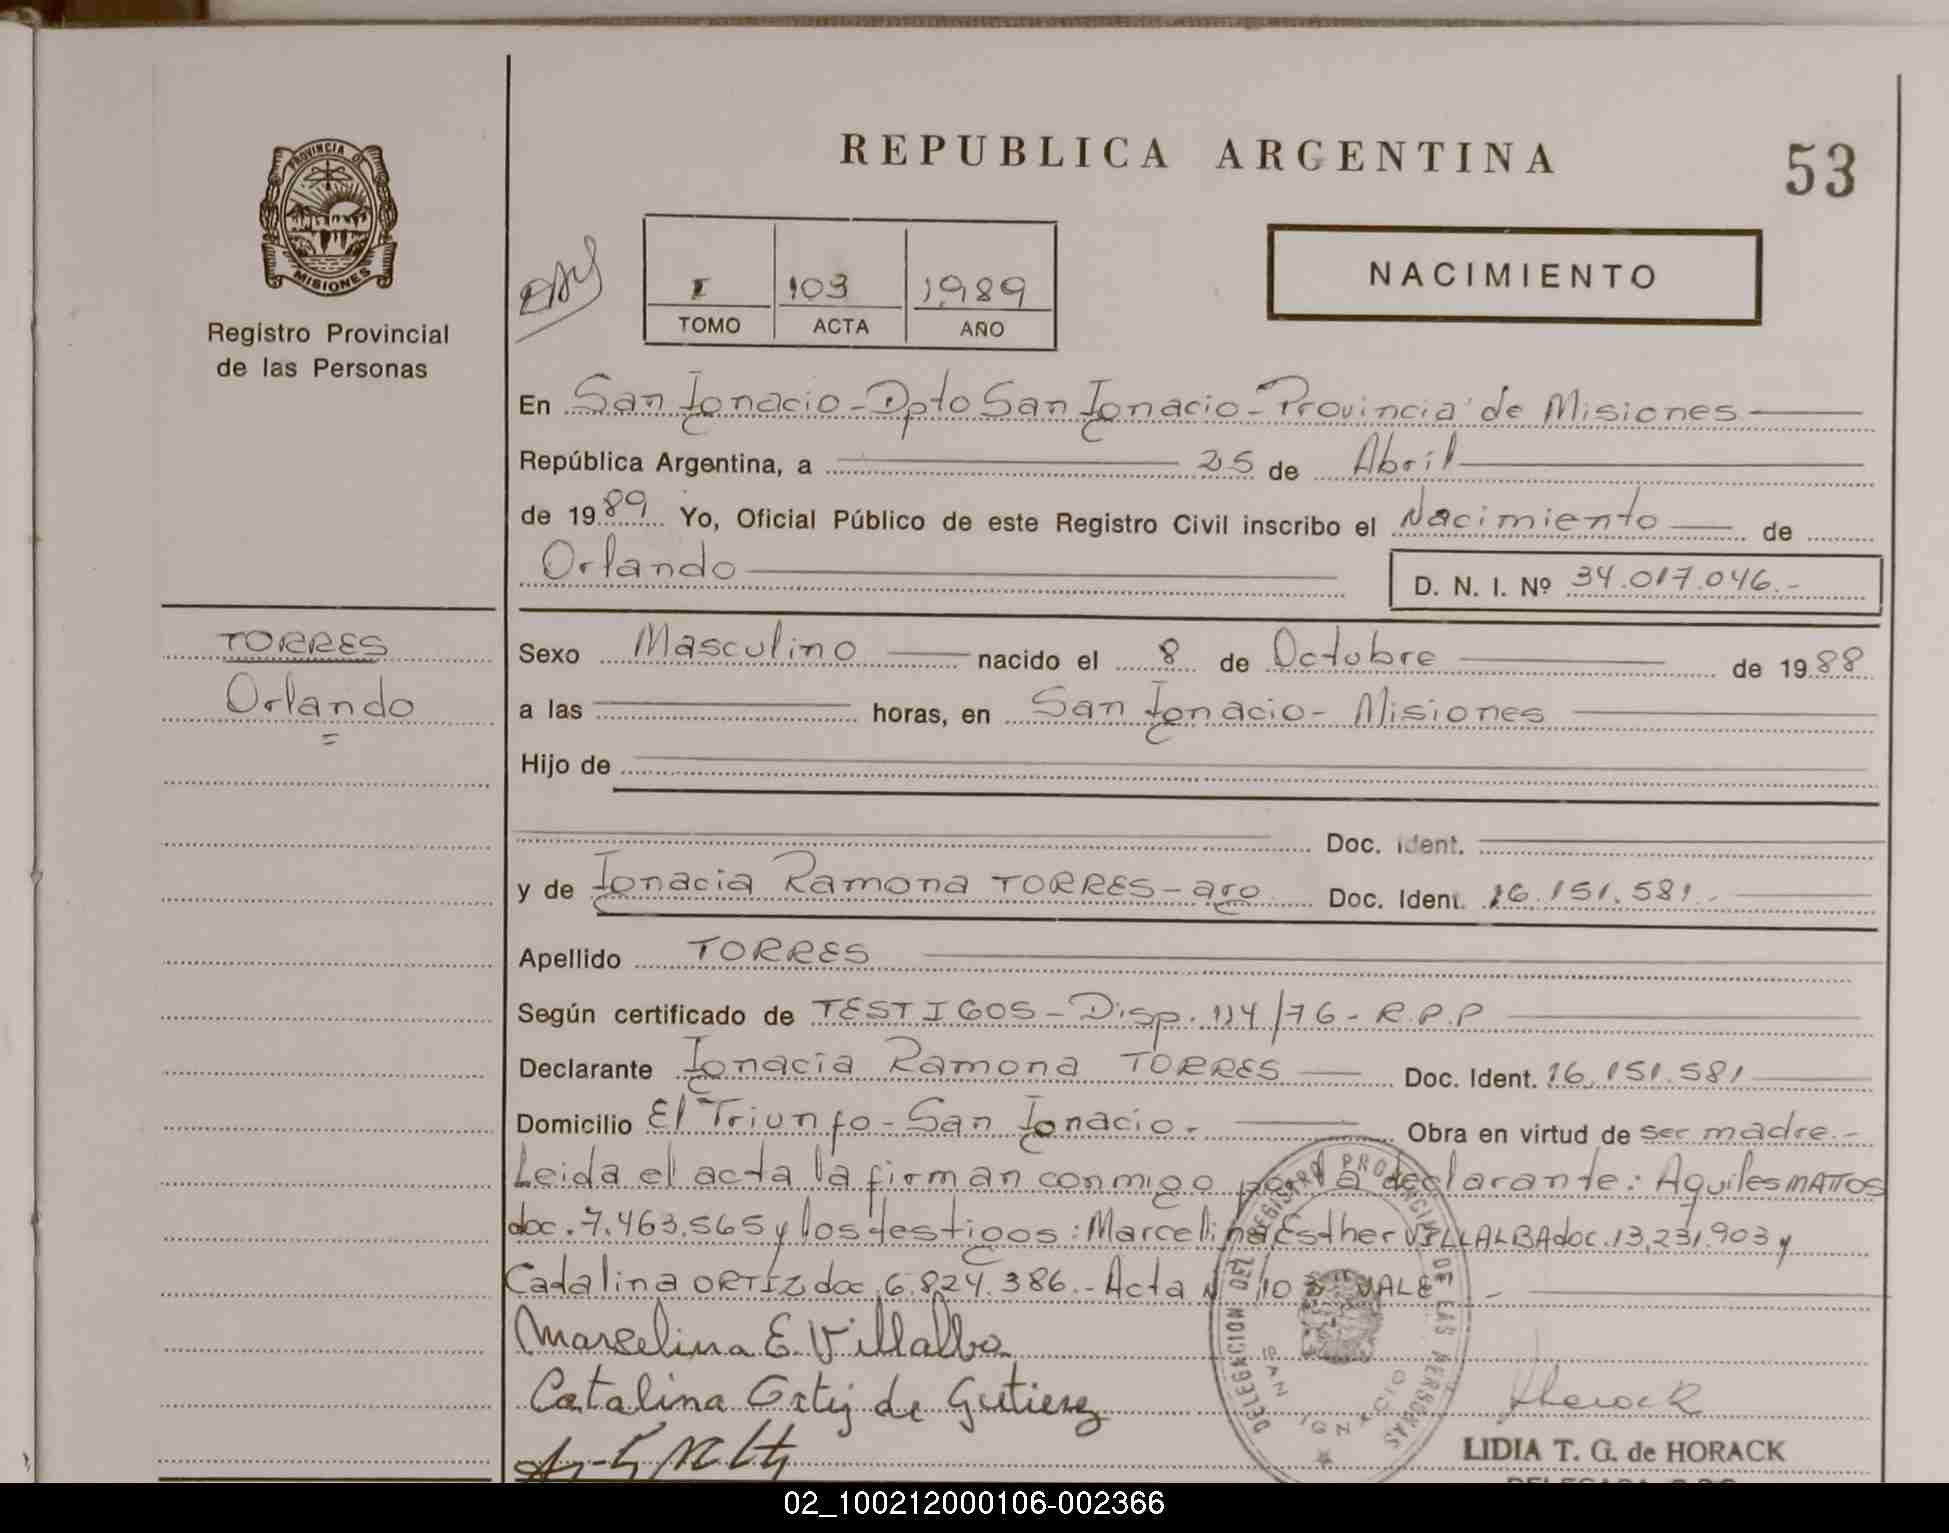 PROVINCIA DE
MISIONES
Registro Provincial
de las Personas
REPUBLICA ARGENTINA
53
I 103 1989
TOMO ACTA AÑO
NACIMIENTO
En San Ignacio - Dpto San Ignacio - Provincia de Misiones
República Argentina, a 25 de Abril
de 1989 Yo, Oficial Público de este Registro Civil inscribo el Nacimiento de
Orlando D. N. I. Nº 34.017.046.-
TORRES
Orlando
Sexo Masculino nacido el 8 de Octubre de 1988
a las horas, en San Ignacio - Misiones
Hijo de
Doc. Ident.
y de Ignacia Ramona TORRES - arg. Doc. Ident. 16.151.581.-
Apellido TORRES
Según certificado de TESTIGOS - Disp. 114/76 - R.P.P
Declarante Ignacia Ramona TORRES Doc. Ident. 16.151.581
Domicilio El Triunfo - San Ignacio.- Obra en virtud de ser madre.-
Leida el acta la firman conmigo por la declarante: Aquiles MATTOS
doc. 7.463.565 y los testigos: Marcelina Esther VILLALBA doc. 13.231.903 y
Catalina ORTIZ doc. 6.824.386.- Acta Nº 103 VALE -
Marcelina E. Villalba
Catalina Ortiz de Gutierez
DELEGACION DEL REGISTRO PROVINCIAL DE LAS PERSONAS
SAN IGNACIO
Horack
LIDIA T. G. de HORACK
02_100212000106-002366